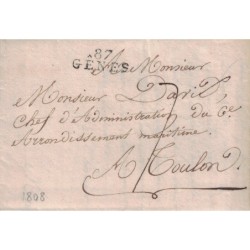 87
GÊNES
A Monsieur
Monsieur David,
Chef d'Administration du 6e
Arrondissement maritime
A Toulon.
1808